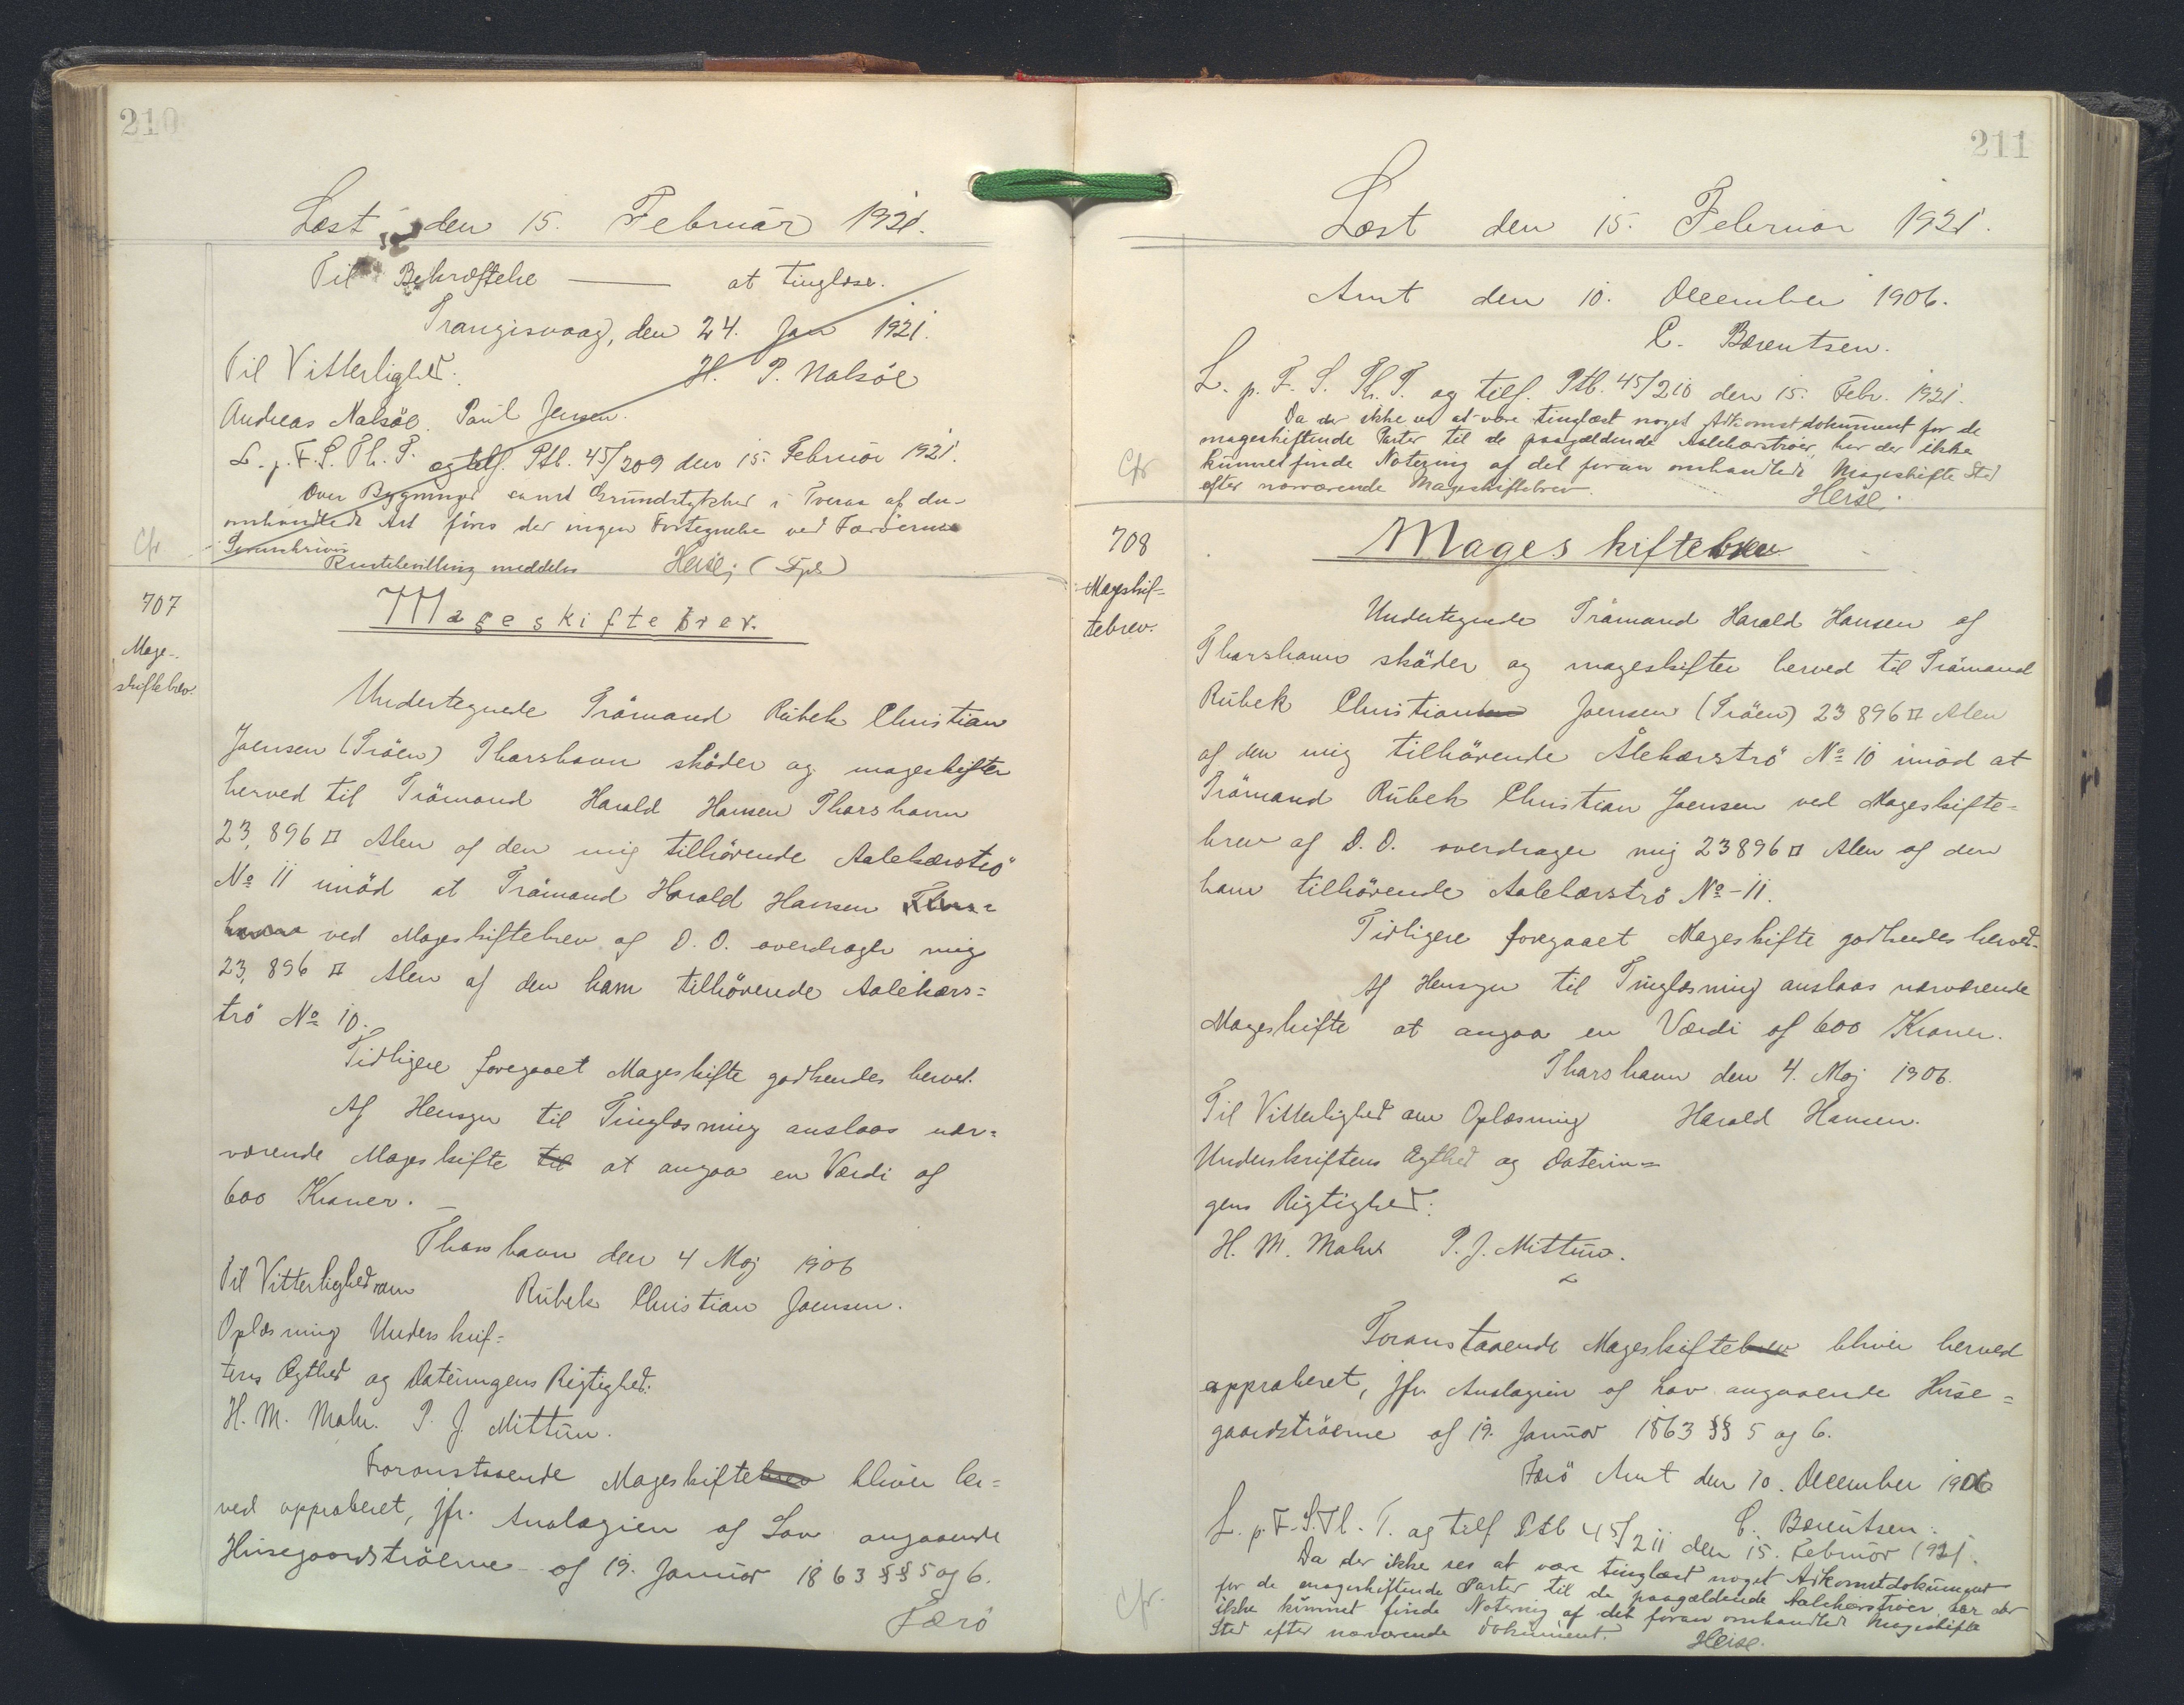 210
Læst den 15. Februar 1921.
Til Bekræftelse ——— at tinglæse.
Trangisvaag, den 24. Jan 1921.
Til Vitterlighed: H. P. Nalsöe
Andreas Nalsöe. Paul Jensen.
L. p. F. S. Th. T. og tilf. Ptb. 45/209 den 15. Februar 1921.
Over Bygninger samt Grundstykker i Tveraa af den
omhandlede Art föres der ingen Fortegnelse ved Færöernes
Cfr
Sorenskriveri
meddeles Heise; (Fpl)
707
Mage-
skiftebrev.
Mageskiftebrev.
Undertegnede Trömand Rübek Christian
Joensen (Tröen) Thorshavn sköder og mageskifter
herved til Trömand Harald Hansen Thorshavn
23,896 □ Alen af den mig tilhörende Aalekærströ
No 11 imod at Trömand Harald Hansen Thors=
havn ved Mageskiftebrev af D. D. overdrager mig
23,896 □ Alen af den ham tilhörende Aalekærs=
trö No 10.
Tidligere foregaaet Mageskifte godkendes herved.
Af Hensyn til Tinglæsning anslaas nær=
værende Mageskifte til at angaa en Værdi af
600 Kroner. —
Thorshavn den 4 Maj 1906
Til Vitterlighed om Rübek Christian Joensen.
Oplæsning Underskrif=
tens Ægthed og Dateringens Rigtighed:
H. M. Mohr. P. J. Mittun.
Foranstaaende Mageskiftebrev bliver her=
ved approberet, jfr. Analogien af Lov angaaende
Husegaardströerne af 19. Januar 1863 §§ 5 og 6.
Færö
211
Læst den 15. Februar 1921.
Amt den 10. December 1906.
C. Bærentsen.
L. p. F. S. Th. T. og tilf. Ptb. 45/210 den 15. Febr. 1921.
Da der ikke ses at være tinglæst noget Adkomstdokument for de
mageskiftende Parter til de paagældende Aalekærströer, har der ikke
Cfr
kunnet finde Notering af det foran omhandlede Mageskifte Sted
efter nærværende Mageskiftebrev.
Heise.
708
Mageskif=
tebrev.
Mageskiftebrev
Undertegnede Trömand Harald Hansen af
Thorshavn sköder og mageskifter herved til Trömand
Rübek Christian Joensen (Tröen) 23 896 □ Alen
af den mig tilhörende Ålekærströ No 10 imod at
Trömand Rübek Christian Joensen ved Mageskifte=
brev af D. D. overdrager mig 23896 □ Alen af den
ham tilhörende Aalekærströ No - 11.
Tidligere foregaaet Mageskifte godkendes herved.
Af Hensyn til Tinglæsning anslaas nærværende
Mageskifte at angaa en Værdi af 600 Kroner.
Thorshavn den 4. Maj 1906.
Til Vitterlighed om Oplæsning Harald Hansen.
Underskriftens Ægthed og Daterin=
gens Rigtighed:
H. M. Mohr P. J. Mittun.
Foranstaaende Mageskiftebrev bliver herved
approberet, jfr. Analogien af Lov angaaende Huse=
gaardströerne af 19. Januar 1863 §§ 5 og 6.
Færö Amt den 10. December 1906
C. Bærentsen.
L. p. F. S. Th. T. og tilf Ptb 45/211 den 15. Februar 1921.
Da der ikke ses at være tinglæst noget Adkomstdokument
for de mageskiftende Parter til de paagældende Aalekærströer, har der
Cfr.
ikke kunnet finde Notering af det foran omhandlede Mageskifte
Sted efter nærværende Dokument. Heise.